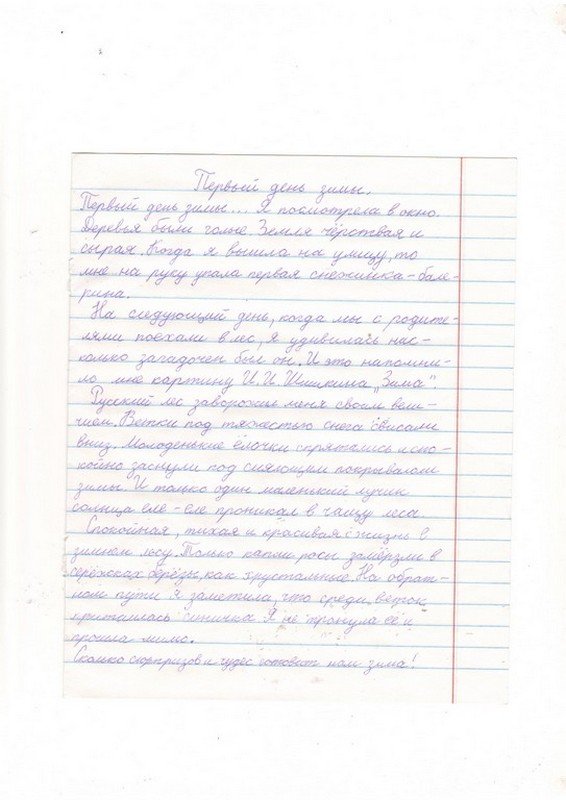 Первый день зимы.
Первый день зимы... Я посмотрела в окно.
Деревья были голые. Земля чёрствая и
сырая. Когда я вышла на улицу, то
мне на руку упала первая снежинка-бале-
рина.
На следующий день, когда мы с родите-
лями поехали в лес, я удивилась нас-
колько загадочен был он. И это напомни-
ло мне картину И.И. Шишкина „Зима".
Русский лес заворожил меня своим вели-
чием. Ветки под тяжестью снега свисали
вниз. Молоденькие ёлочки спрятались и спо-
койно заснули под сияющим покрывалом
зимы. И только один маленький лучик
солнца еле-еле проникал в чащу леса.
Спокойная, тихая и красивая жизнь в
зимнем лесу. Только капли росы замёрзли в
серёжках берёзы как хрустальные. На обрат-
ном пути я заметила, что среди веток
притаилась синичка. Я не тронула её и
прошла мимо.
Сколько сюрпризов и чудес готовит нам зима!